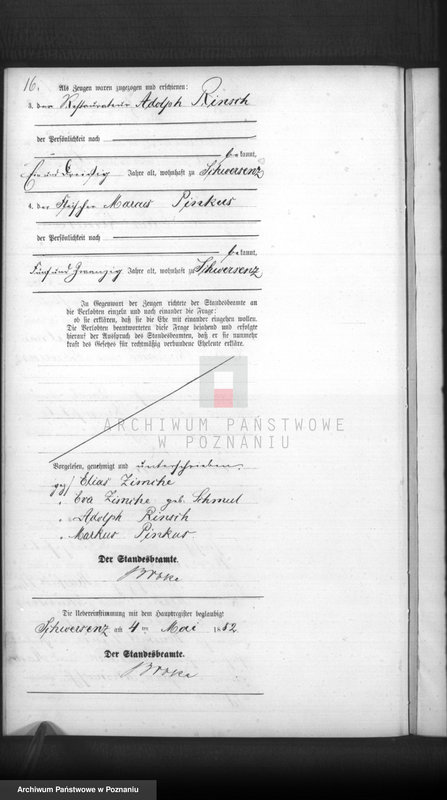 16.
Als Zeugen waren zugezogen und erschienen:
3. der Restaurateur Adolph Rinsch
der Persönlichkeit nach
be kannt,
Ein und Dreissig Jahre alt, wohnhaft zu Schwersenz
4. der Fleischer Marcus Pinkus
der Persönlichkeit nach
be kannt,
Fünf und Zwanzig Jahre alt, wohnhaft zu Schwersenz
In Gegenwart der Zeugen richtete der Standesbeamte an
die Verlobten einzeln und nach einander die Frage:
ob sie erklären, daß sie die Ehe mit einander eingehen wollen.
Die Verlobten beantworteten diese Frage bejahend und erfolgte
hierauf der Ausspruch des Standesbeamten, daß er sie nunmehr
kraft des Gesetzes für rechtmäßig verbundene Eheleute erkläre.
ARCHIWUM PAŃSTWOWE
W POZNANIU
Vorgelesen, genehmigt und unterschrieben
gez/ Elias Zimche
" Eva Zimche geb. Schmul
" Adolph Rinsch
" Markus Pinkus
Der Standesbeamte.
Die Uebereinstimmung mit dem Hauptregister beglaubigt
Schwersenz am 4 ten Mai 1882
Der Standesbeamte.
Archiwum Państwowe w Poznaniu